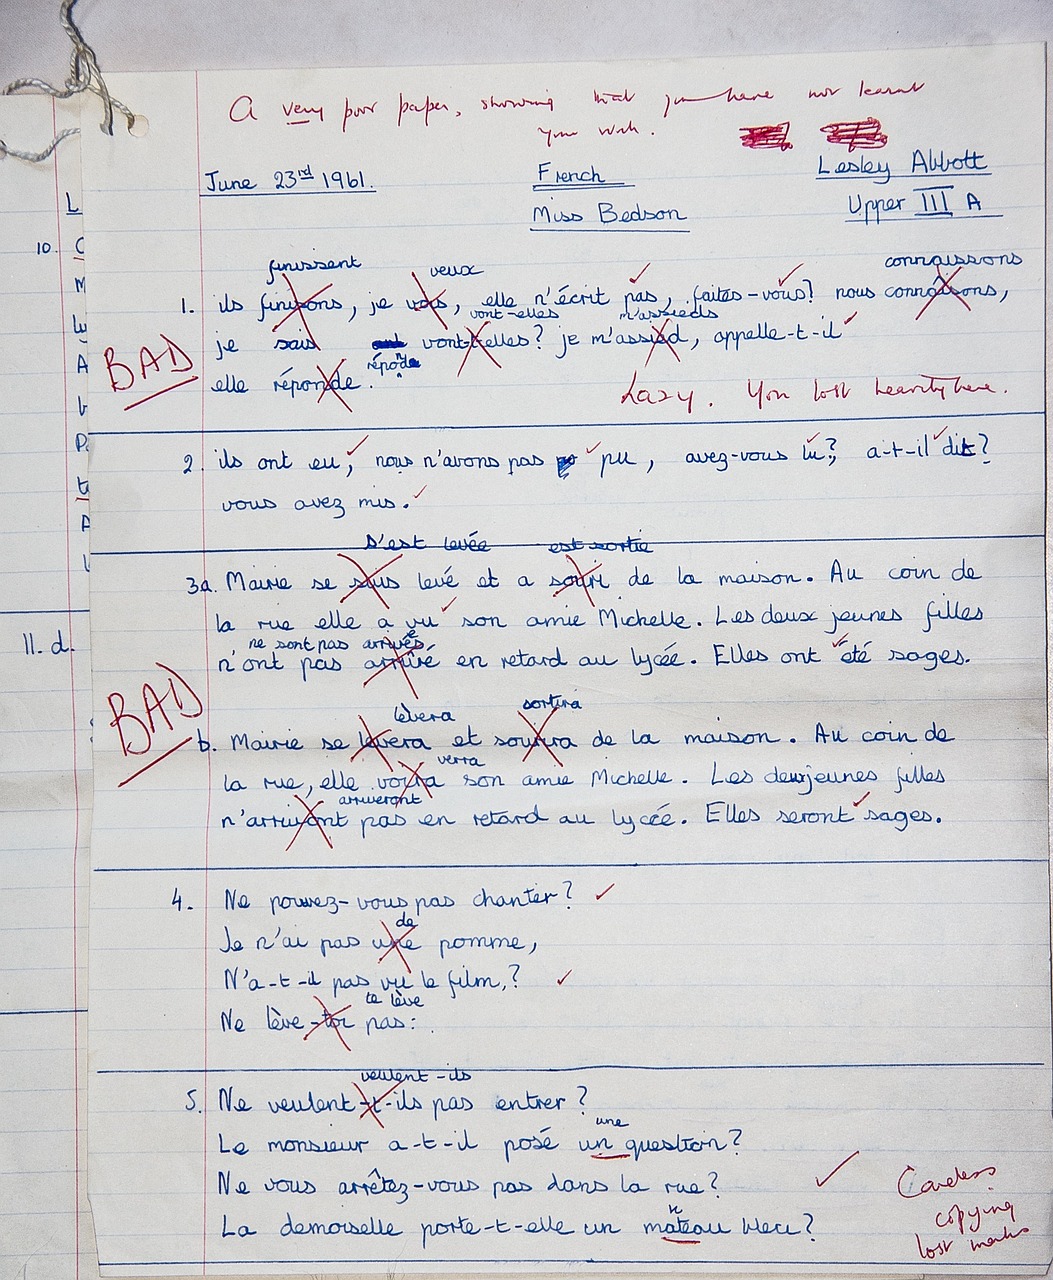 A very poor paper, showing that you have not learnt
your work.
June 23rd 1961.
French
Lesley Abbott
Miss Bedson
Upper III A
finissent veux connaissons
1. ils finisons, je vois, elle n'écrit pas, faites-vous? nous connaisons,
vont-elles m'assieds
je sais vont-t-elles? je m'assied, appelle-t-il
BAD
réponde
elle réponde.
Lazy. You lost heavily here.
2. ils ont eu, nous n'avons pas pu, avez-vous lu?, a-t-il dit?
vous avez mis.
s'est levée est sortie
3a. Mairie se suis levé et a souri de la maison. Au coin de
la rue elle a vu son amie Michelle. Les deux jeunes filles
ne sont pas arrivées
n'ont pas arrivé en retard au lycée. Elles ont été sages.
BAD
lèvera sortira
b. Mairie se levera et sourira de la maison. Au coin de
verra
la rue, elle voira son amie Michelle. Les deux jeunes filles
arriveront
n'arrivont pas en retard au lycée. Elles seront sages.
4. Ne pouvez-vous pas chanter?
de
Je n'ai pas une pomme,
N'a-t-il pas vu le film,?
te lève
Ne lève-toi pas:
veulent-ils
5. Ne veulent-t-ils pas entrer?
une
Le monsieur a-t-il posé un question?
Ne vous arrêtez-vous pas dans la rue?
n
La demoiselle porte-t-elle un mateau bleu?
Careless
copying
lost marks
10.
11. d.